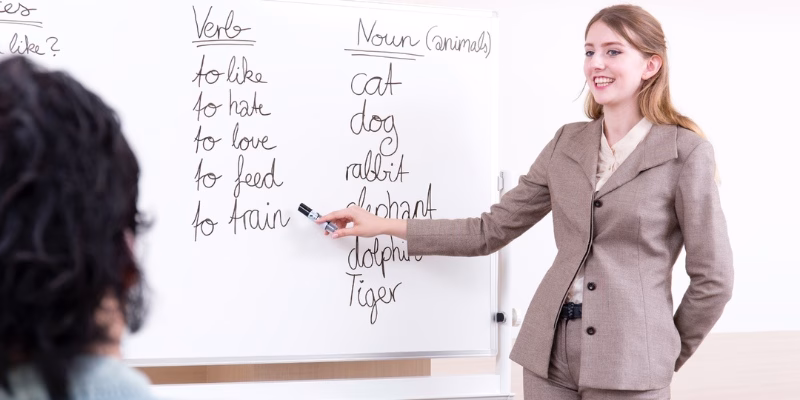 like?
Verb
to like
to hate
to love
to feed
to train
Noun (animals)
cat
dog
rabbit
elephant
dolphin
Tiger